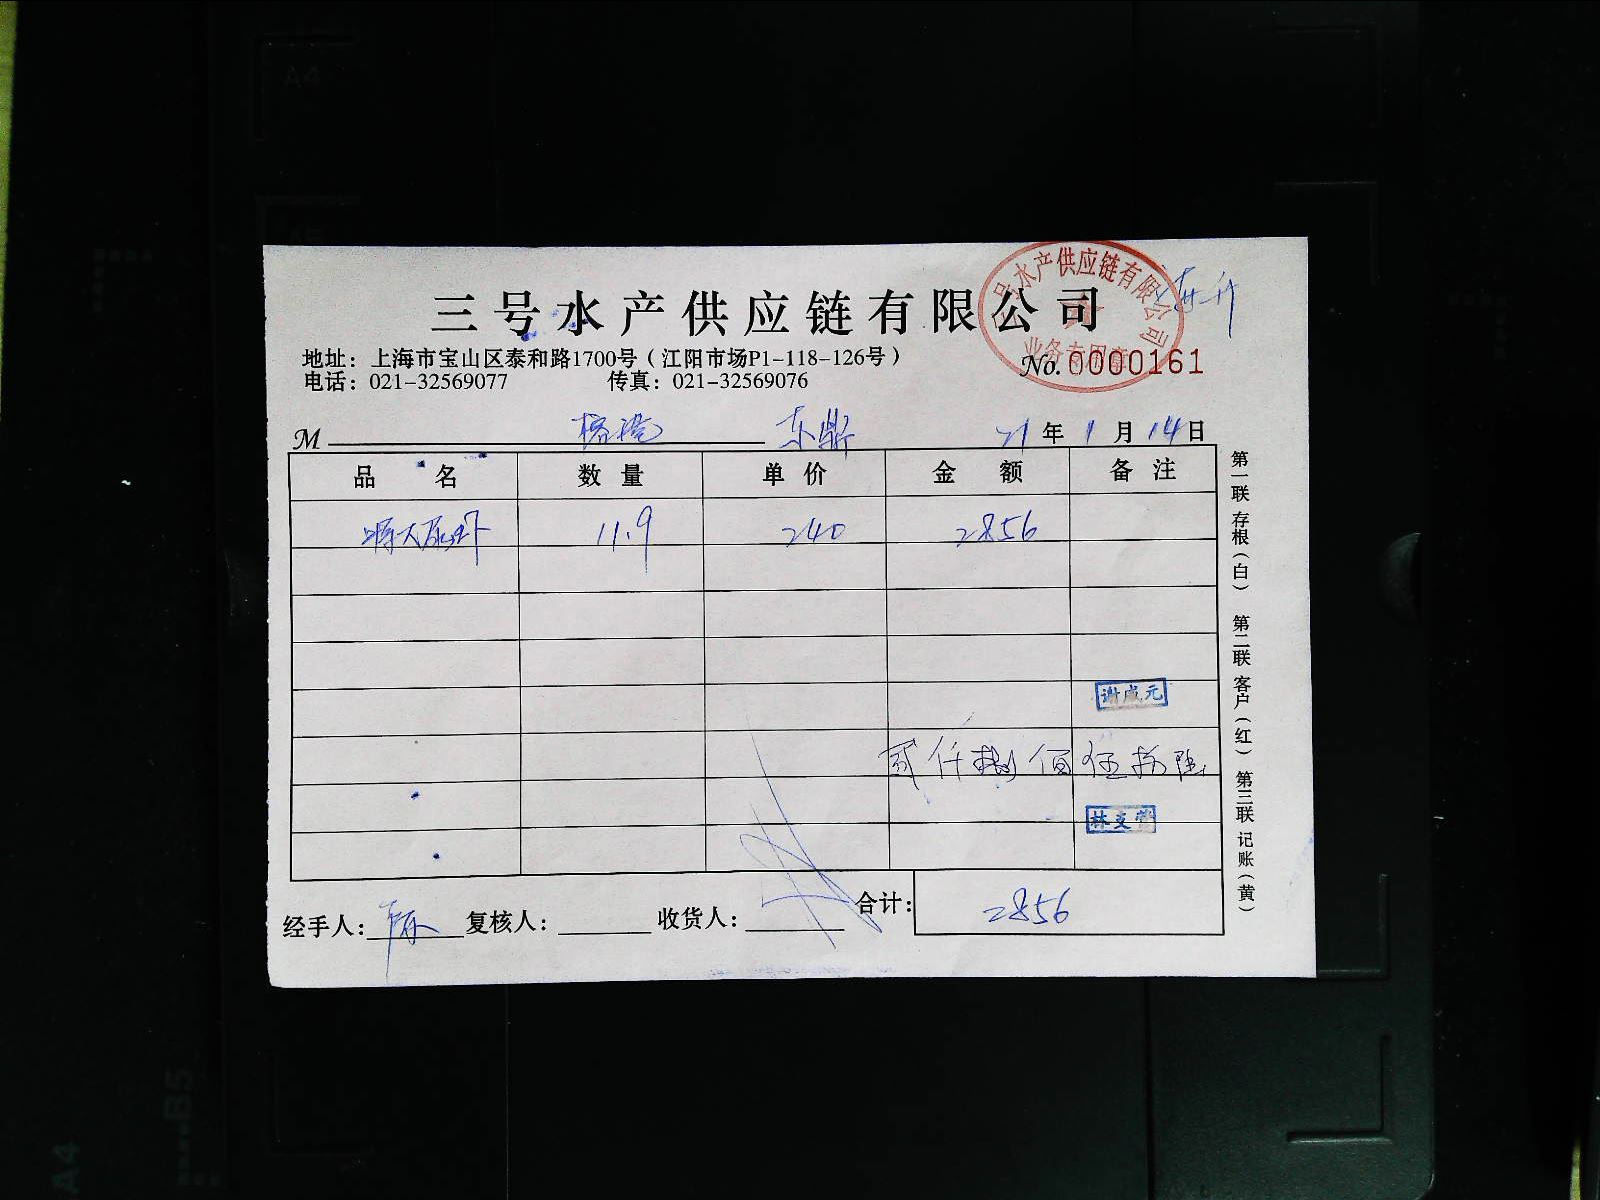 三号水产供应链有限公司
三号水产供应链有限公司
业务专用章
地址：上海市宝山区泰和路1700号（江阳市场P1-118-126号）
电话：021-32569077 传真：021-32569076
No. 0000161
M 东鼎 21年1月14日
品名 数量 单价 金额 备注
11.9 240 2856
谢成元
贰仟捌佰伍拾陆
林支营
经手人： 陈 复核人： 收货人： 合计： 2856
第一联 存根（白） 第二联 客户（红） 第三联 记账（黄）
A4
B5
A4